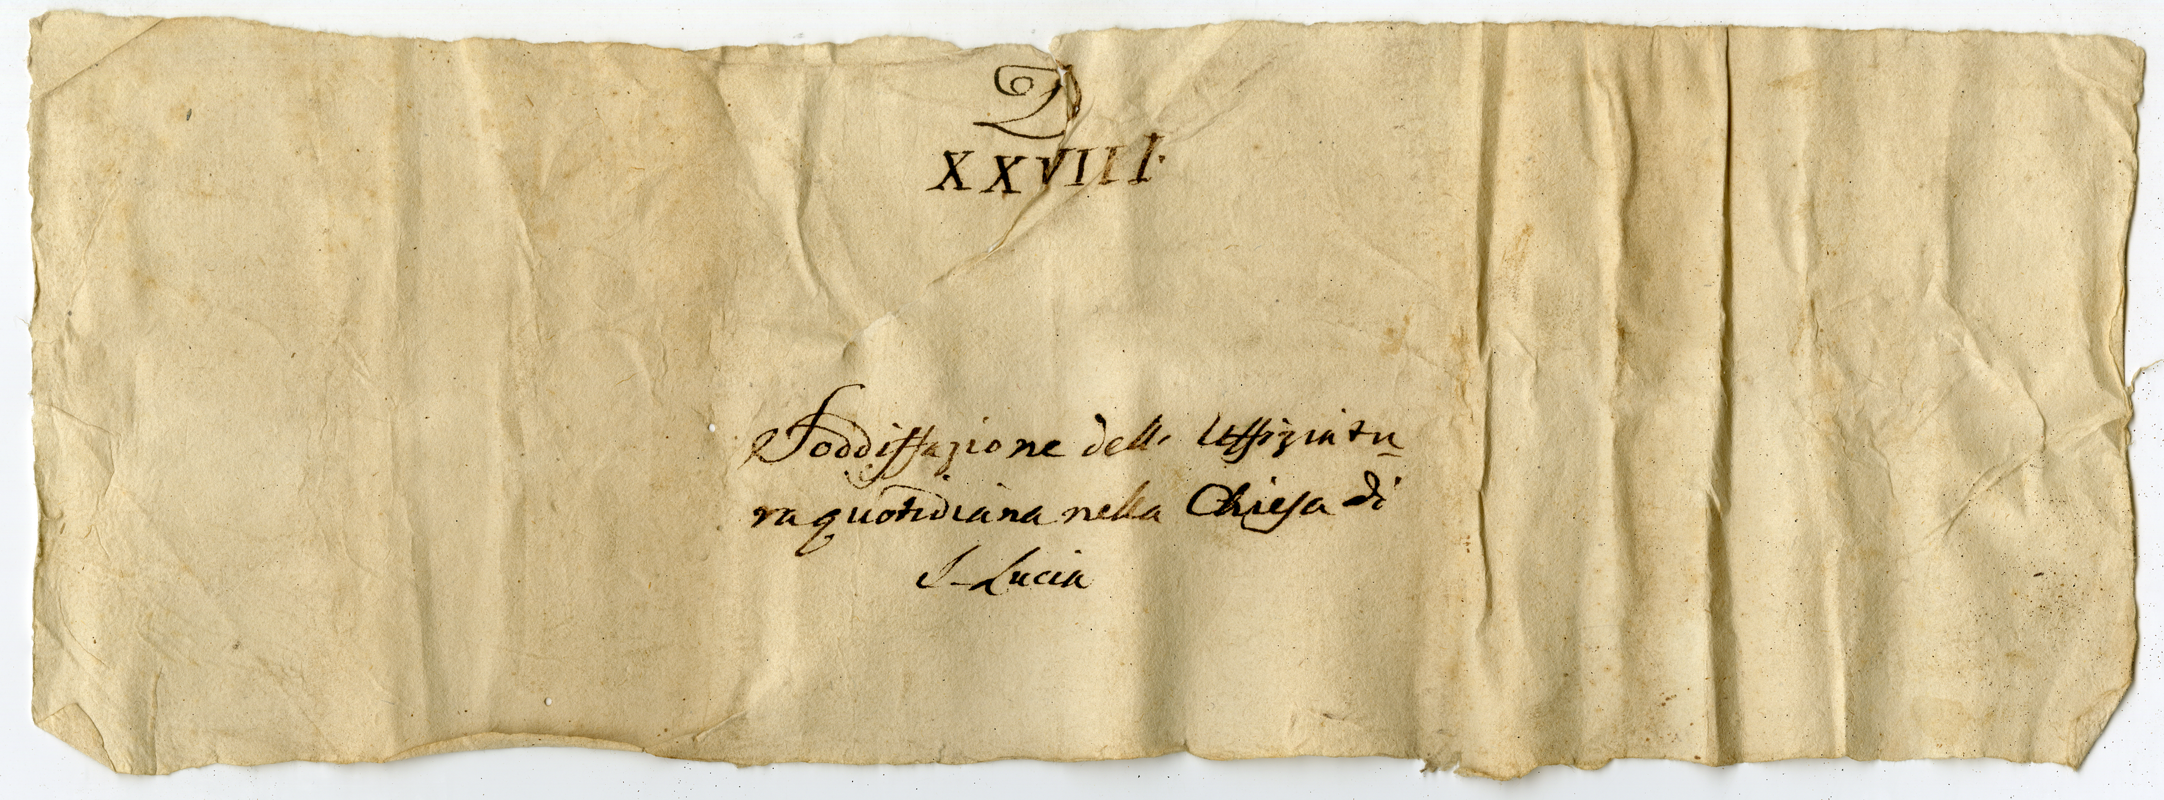 D
XXVIII.
Soddisfazione dell' Uffiziatu-
ra quotidiana nella Chiesa di
S. Lucia